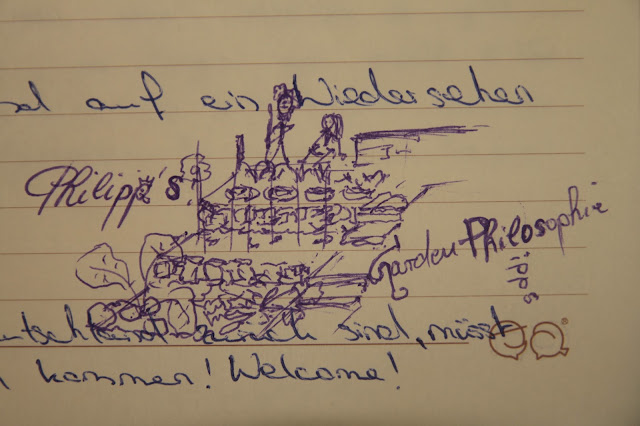 auf ein Wiedersehen
Philippa's
Garden Philosophie
sind, müsst
kommen! Welcome!